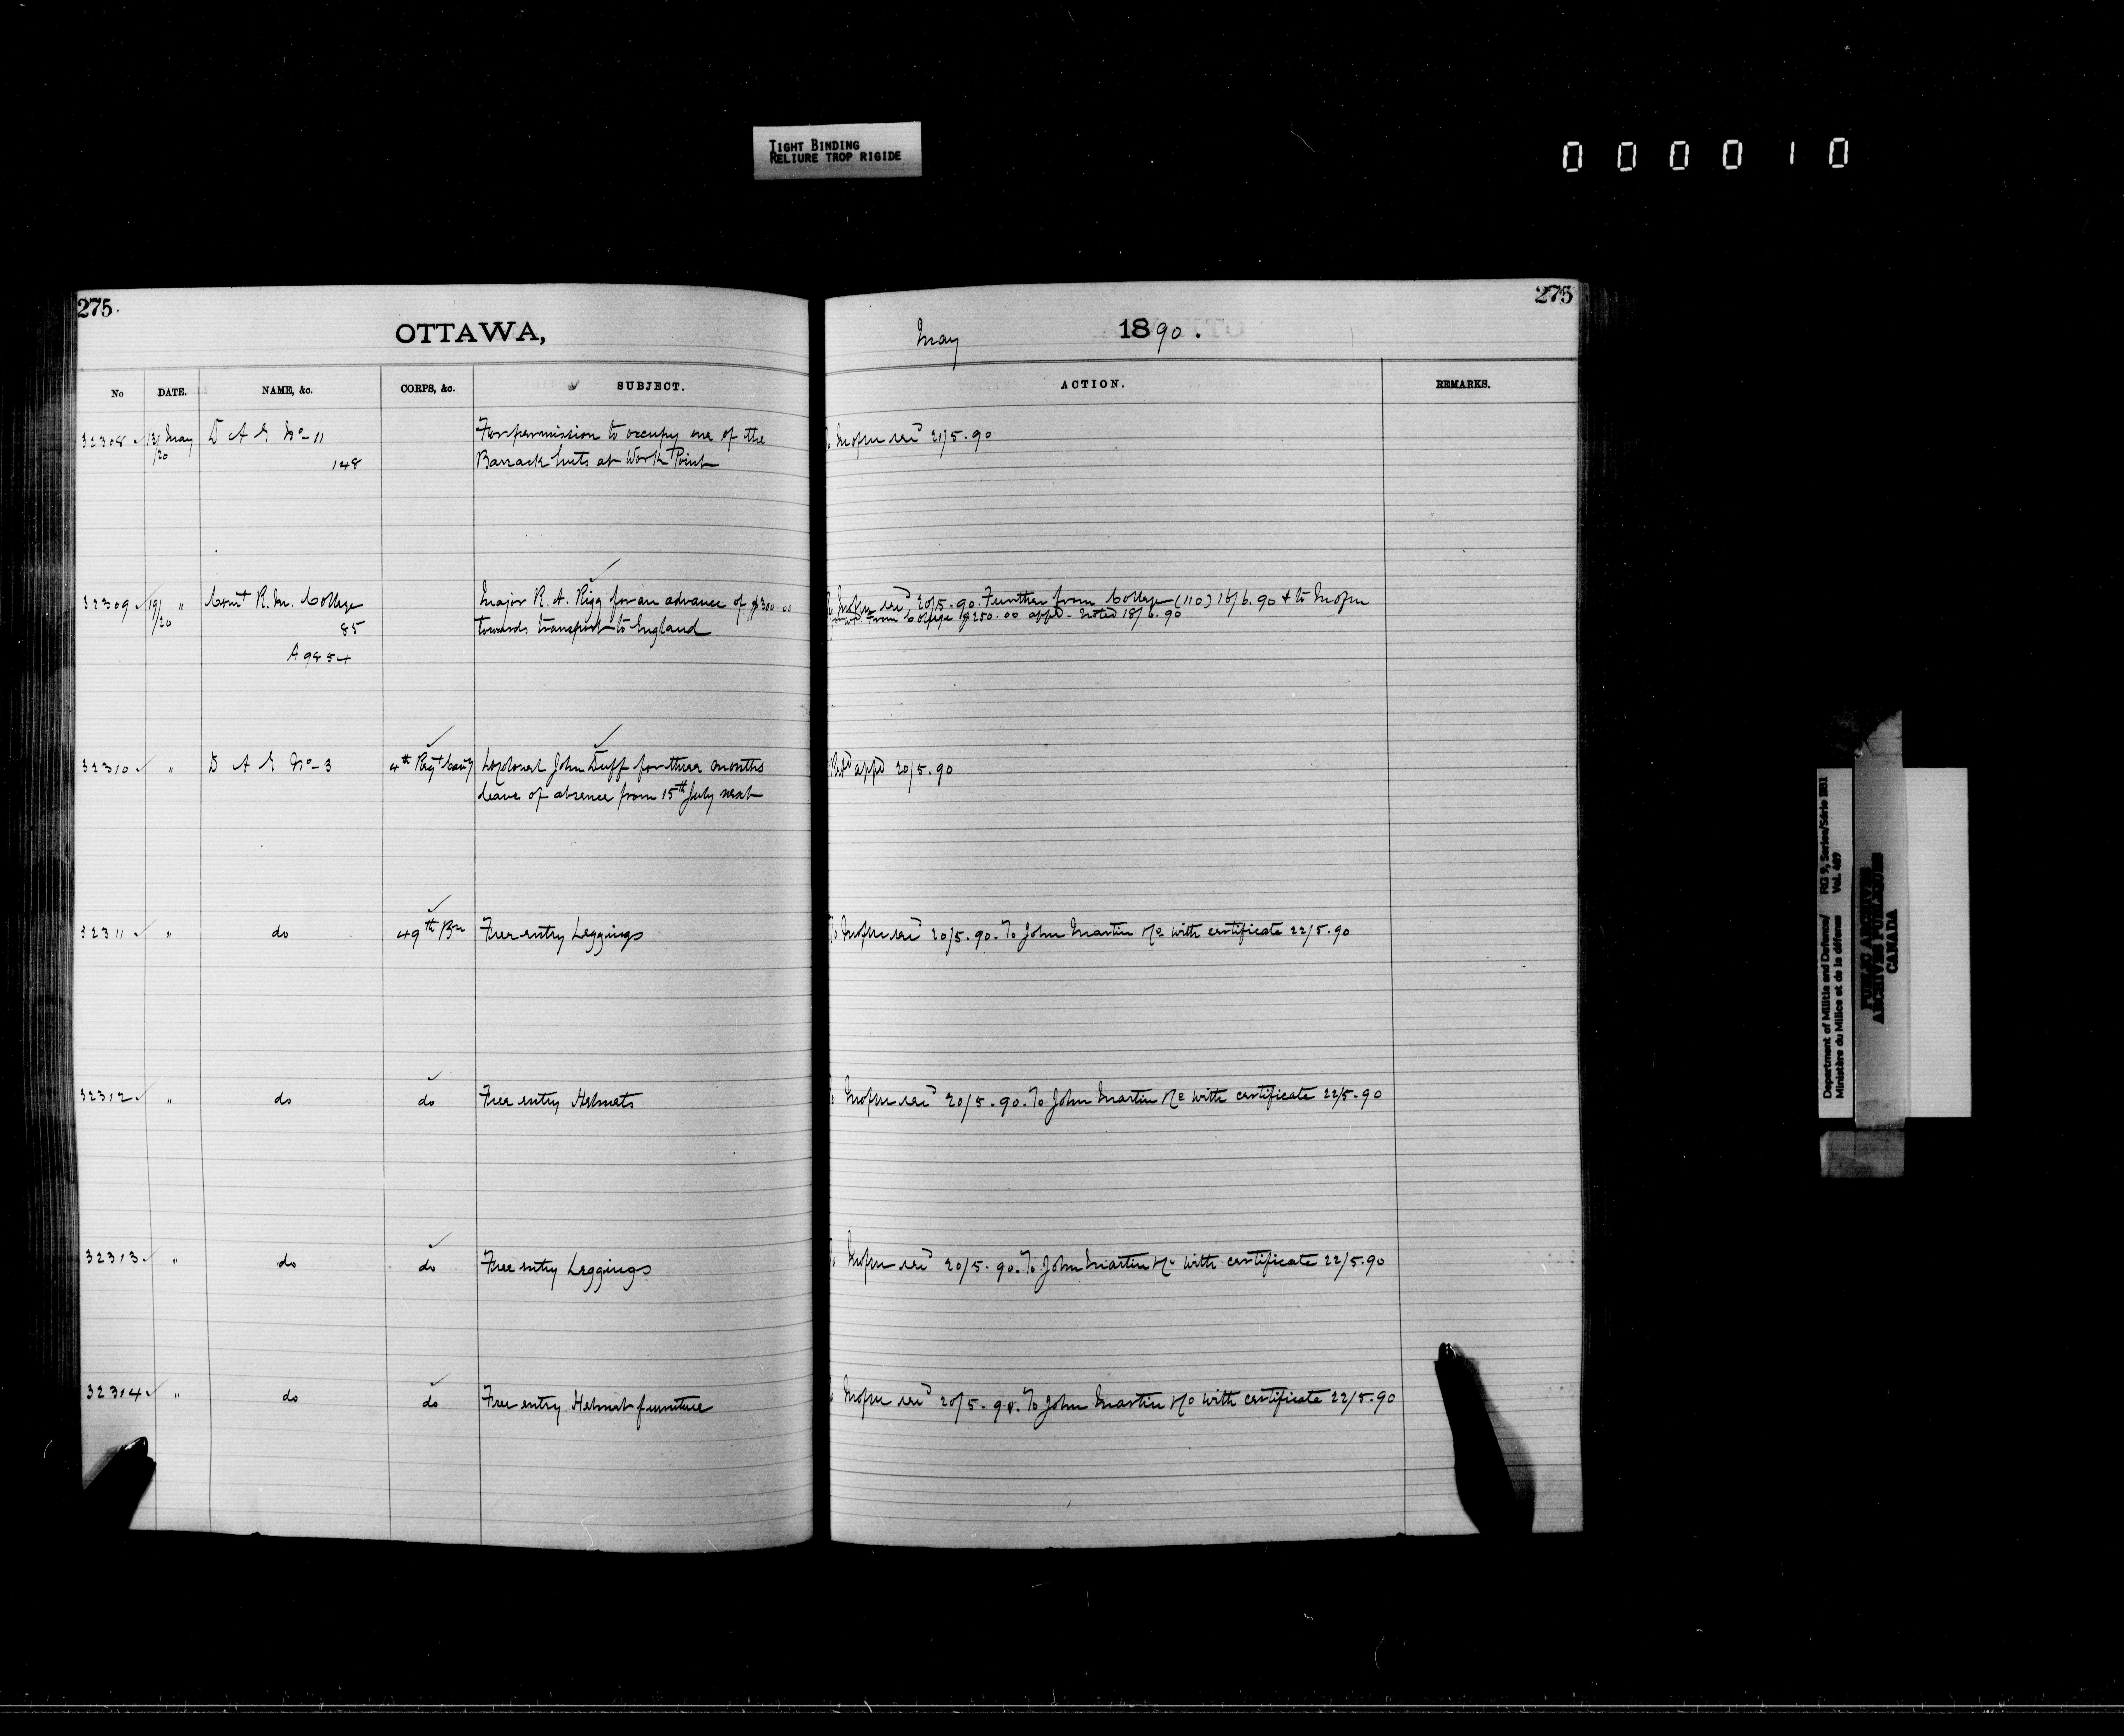 TIGHT BINDING
RELIURE TROP RIGIDE
000010
275.
OTTAWA,
No DATE. NAME, &c. CORPS, &c. SUBJECT.
32308 13/ May D A G No- 11 For permission to occupy one of the
/20 148 Barrack huts at Work Point
32309 19/ " Comt R. M. College Major R. A. Rigg for an advance of $300.00
/20 85 towards transport to England
A 9854
32310 " D A G No- 3 4th Regt Cavy Lt Colonel John Duff for three months
leave of absence from 15th July next
32311 " do 49th Bn Free entry Leggings
32312 " do do Free entry Helmets
32313 " do do Free entry Leggings
32314 " do do Free entry Helmet furniture
275
May 1890.
ACTION. REMARKS.
21/5.90
20/5.90. Further from College (110) 16/6.90 & to
From College $250.00 appd - noted 18/6.90
appd 20/5.90
20/5.90. To John Martin with certificate 22/5.90
20/5.90. To John Martin with certificate 22/5.90
20/5.90. To John Martin with certificate 22/5.90
20/5.90. To John Martin with certificate 22/5.90
Department of Militia and Defence/ RG 9, Series/Série IIB1
Ministère du Milice et de la défence Vol. 489
PUBLIC ARCHIVES
ARCHIVES PUBLIQUES
CANADA